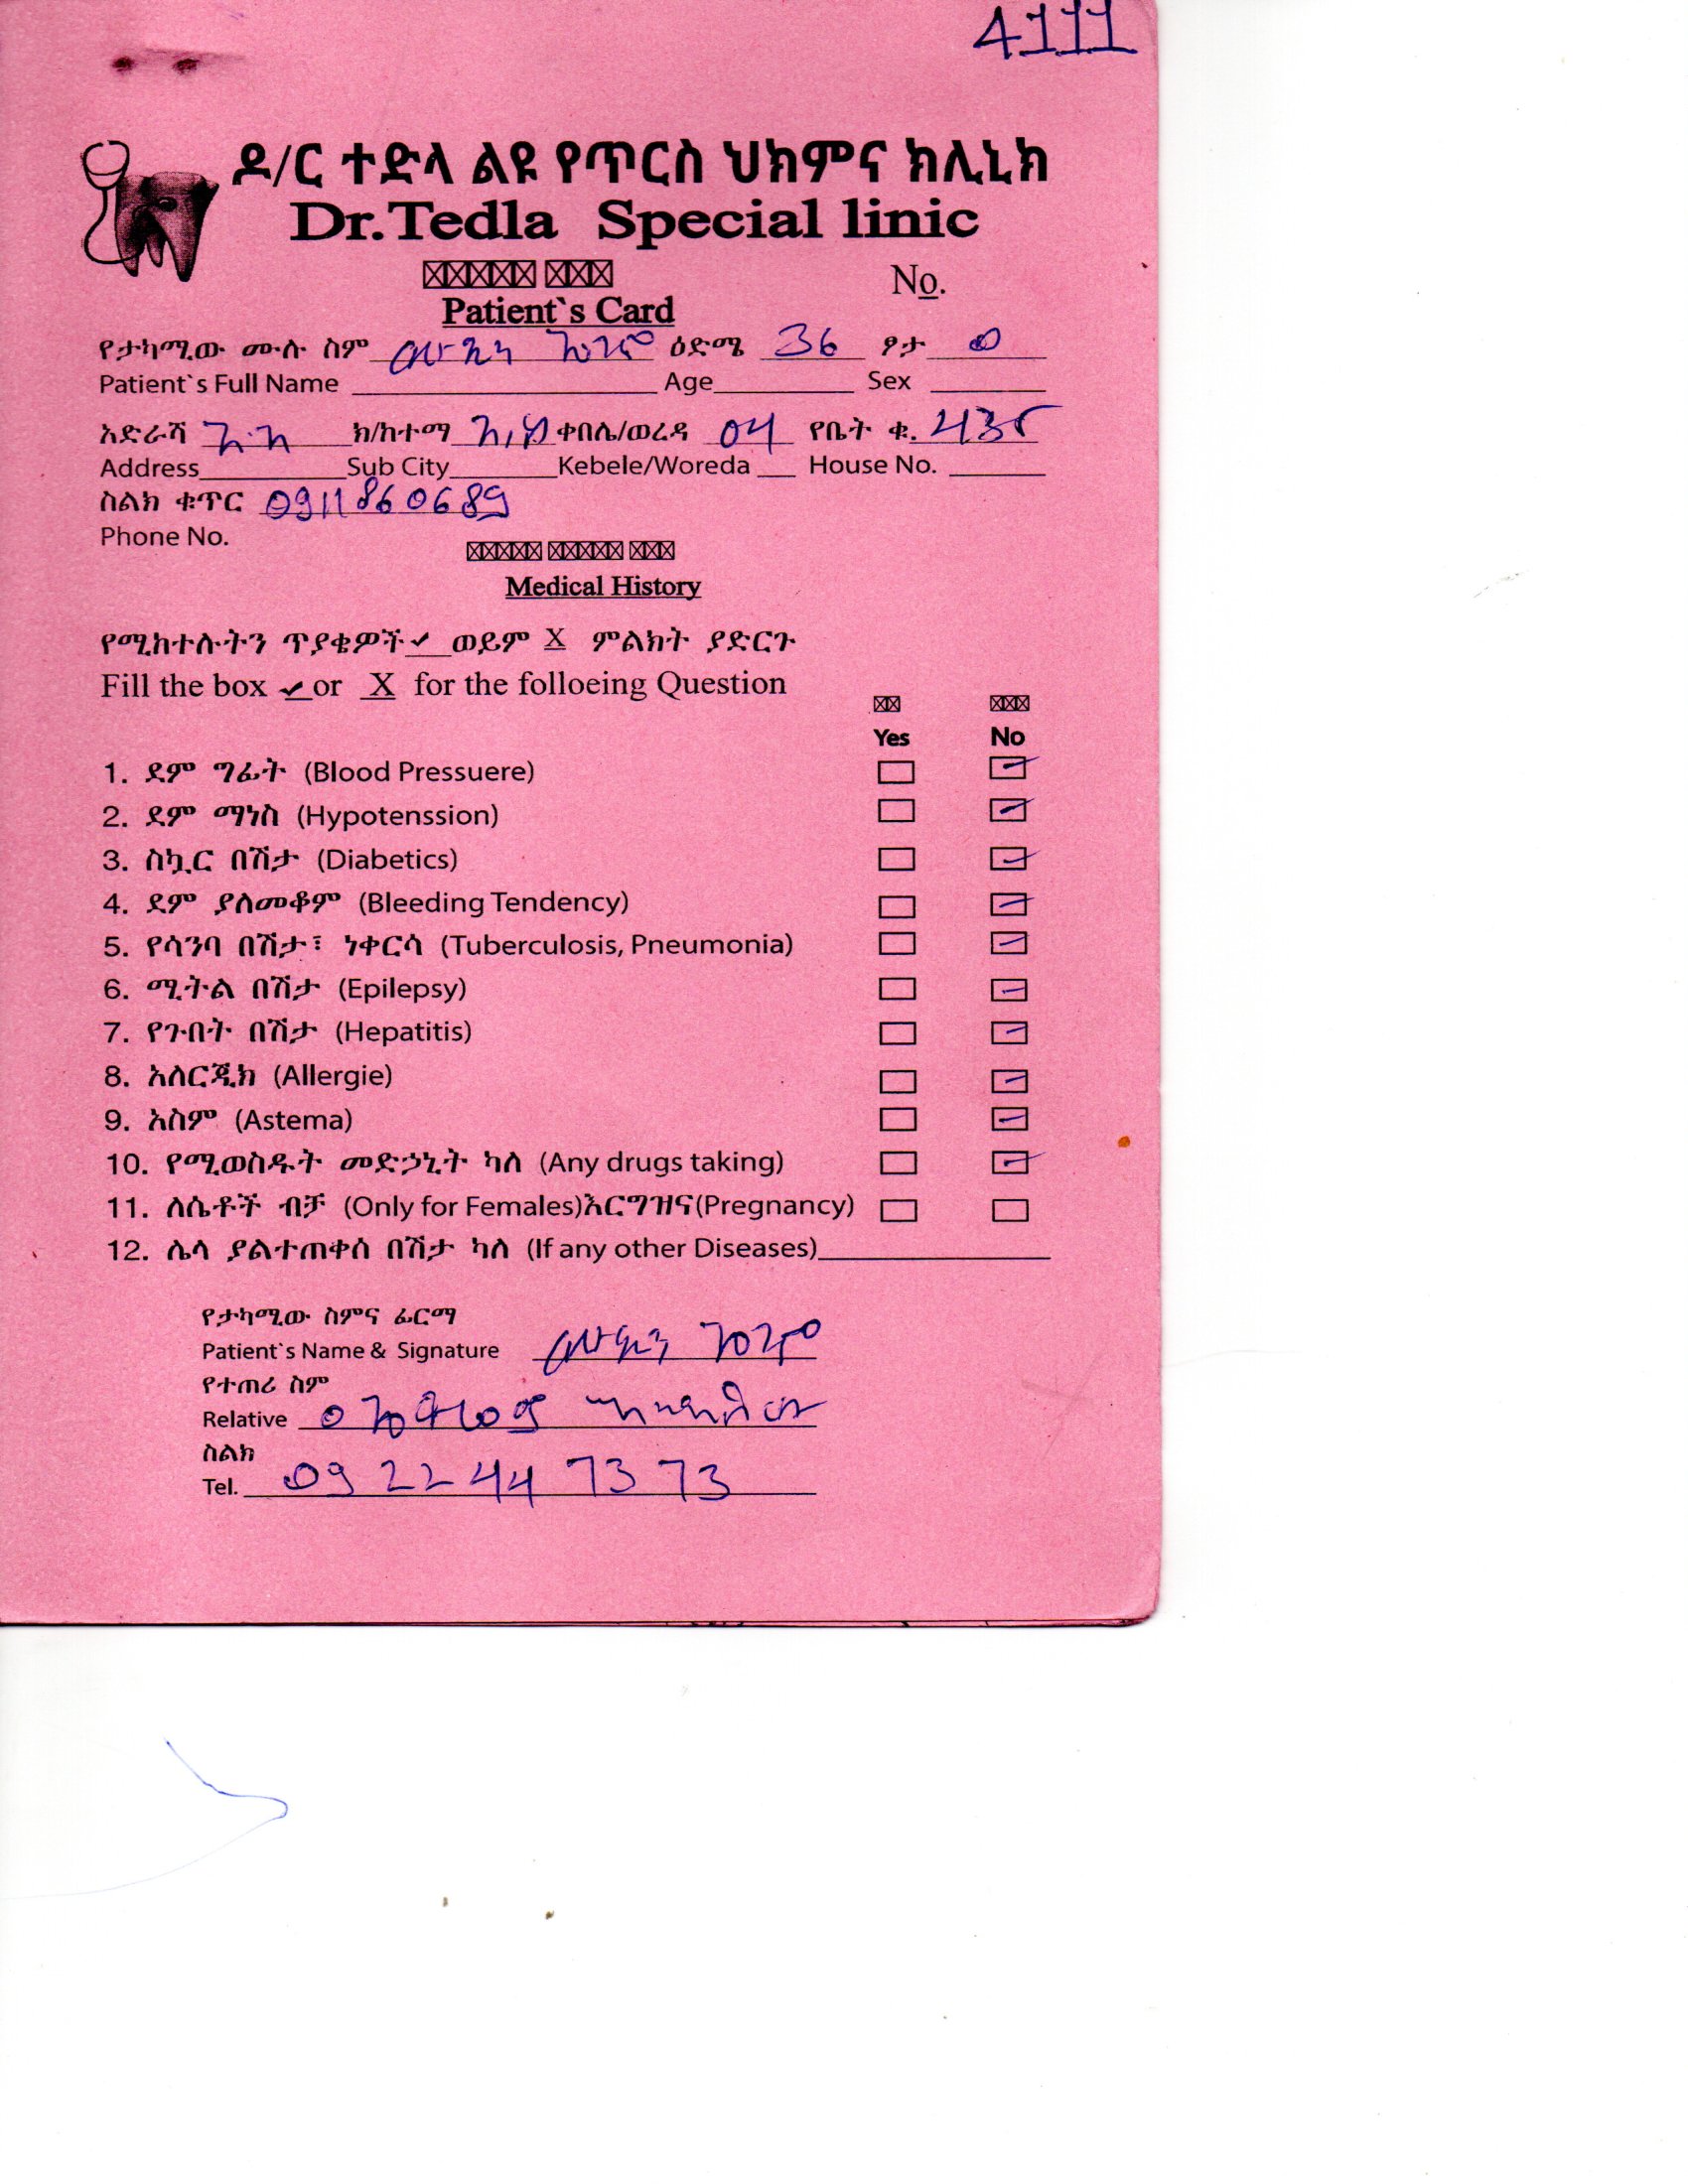 4111
ዶ/ር ተድላ ልዩ የጥርስ ህክምና ክሊኒክ
Dr.Tedla Special linic
No.
Patient`s Card
የታካሚው ሙሉ ስም ዕድሜ 36 ፆታ ወ
Patient`s Full Name Age Sex
አድራሻ አ.አ ክ/ከተማ ቀበሌ/ወረዳ 04 የቤት ቁ. 435
Address Sub City Kebele/Woreda House No.
ስልክ ቁጥር 0911860689
Phone No.
Medical History
የሚከተሉትን ጥያቄዎች ✓ ወይም X ምልክት ያድርጉ
Fill the box ✓ or X for the folloeing Question
Yes No
1. ደም ግፊት (Blood Pressuere)
2. ደም ማነስ (Hypotenssion)
3. ስኳር በሽታ (Diabetics)
4. ደም ያለመቆም (Bleeding Tendency)
5. የሳንባ በሽታ፣ ነቀርሳ (Tuberculosis, Pneumonia)
6. ሚትል በሽታ (Epilepsy)
7. የጉበት በሽታ (Hepatitis)
8. አለርጂክ (Allergie)
9. አስም (Astema)
10. የሚወስዱት መድኃኒት ካለ (Any drugs taking)
11. ለሴቶች ብቻ (Only for Females)እርግዝና(Pregnancy)
12. ሌላ ያልተጠቀሰ በሽታ ካለ (If any other Diseases)
የታካሚው ስምና ፊርማ
Patient`s Name & Signature
የተጠሪ ስም
Relative
ስልክ
Tel. 09 22 44 73 73